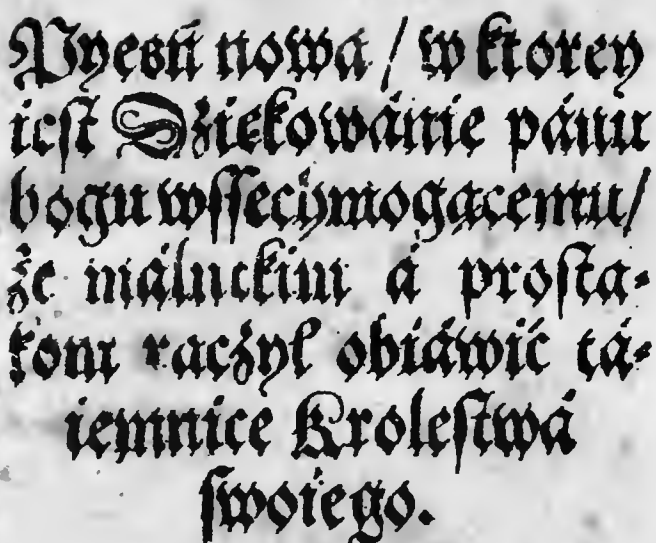 Pyesń nowa / w ktorey
iest Dziękowánie pánu
bogu wſſechmogącemu /
że máluckim á proſta⸗
kom racżył obiáwić tá⸗
iemnice Kroleſtwá
ſwoiego.